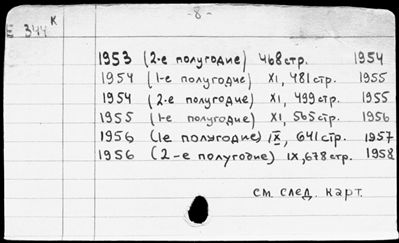 -8-
Е 344 К
1953 (2-е полугодие) 468 стр. 1954
1954 (1-е полугодие) XI, 481 стр. 1955
1954 (2-е полугодие) XI, 499 стр. 1955
1955 (1-е полугодие) XI, 565 стр. 1956
1956 (1е полугодие) IX, 641 стр. 1957
1956 (2-е полугодие) IX, 678 стр. 1958
см. след. карт.